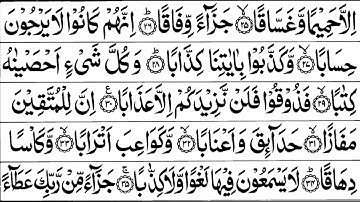 اِلَّا حَمِيْمًا وَّغَسَّاقًا ﴿۲۵﴾ جَزَآءً وِّفَاقًا ﴿۲۶﴾ اِنَّهُمْ كَانُوْا لَا يَرْجُوْنَ
حِسَابًا ﴿۲۷﴾ وَّكَذَّبُوْا بِاٰيٰتِنَا كِذَّابًا ﴿۲۸﴾ وَكُلَّ شَيْءٍ اَحْصَيْنٰهُ
كِتٰبًا ﴿۲۹﴾ فَذُوْقُوْا فَلَنْ نَّزِيْدَكُمْ اِلَّا عَذَابًا ﴿۳۰﴾ اِنَّ لِلْمُتَّقِيْنَ
مَفَازًا ﴿۳۱﴾ حَدَآئِقَ وَاَعْنَابًا ﴿۳۲﴾ وَّكَوَاعِبَ اَتْرَابًا ﴿۳۳﴾ وَّكَاْسًا
دِهَاقًا ﴿۳۴﴾ لَا يَسْمَعُوْنَ فِيْهَا لَغْوًا وَّلَا كِذّٰبًا ﴿۳۵﴾ جَزَآءً مِّنْ رَّبِّكَ عَطَآءً